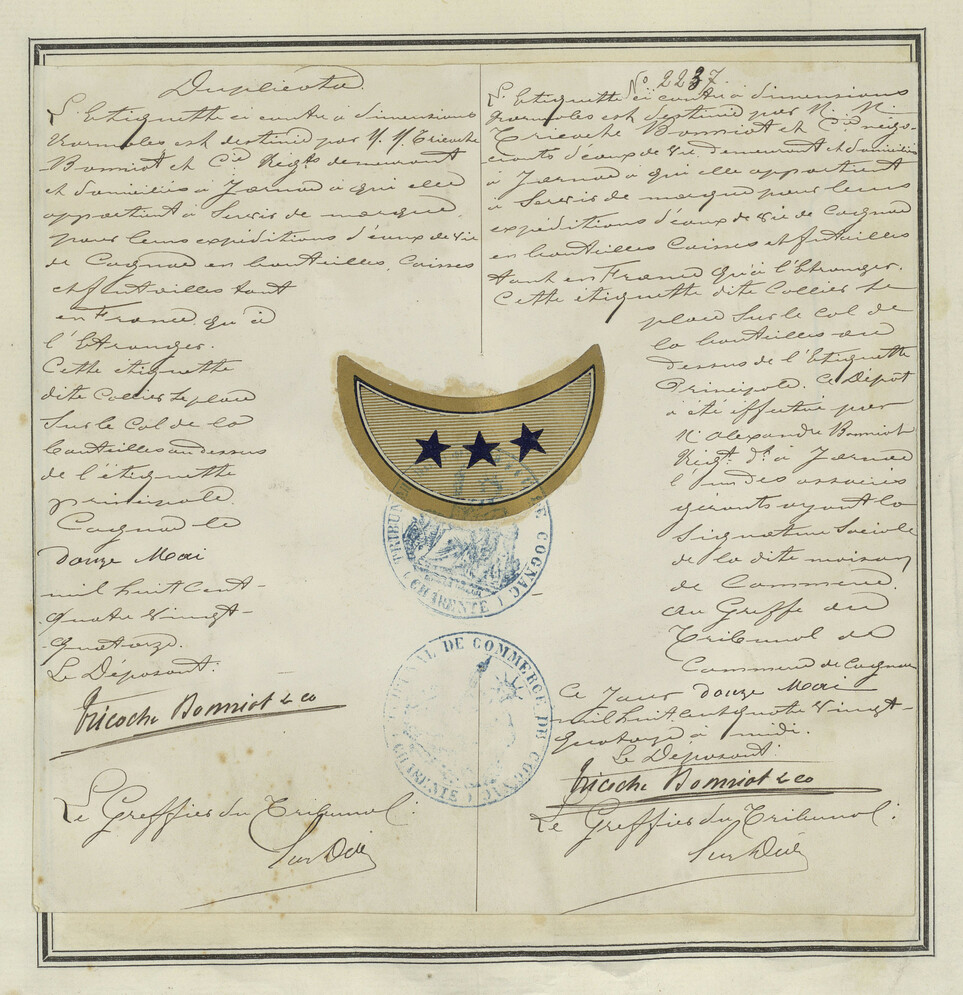 Duplicata.
L'Etiquette ci contre à dimensions
normales est destiné par M. M. Tricoche
Bonniot et Cie Négts demeurant
et domiciliés à Jarnac à qui elle
appartient à Servir de marque
pour leurs expéditions d'eaux de vie
de Cognac en bouteilles, Caisses
et futailles tant
en France qu'à
l'Etranger.
Cette étiquette
dite Collier se place
Sur le Col de la
bouteilles au dessus
de l'étiquette
principale.
Cognac le
douze Mai
mil huit cent
quatre vingt
quatorze.
Le Déposant.
Tricoche Bonniot & co
Le Greffier du Tribunal.
No 2237.
L'Etiquette ci contre à dimensions
normales est destiné par M. M.
Tricoche Bonniot et Cie négo-
ciants d'eaux de vie, demeurant et domiciliés
à Jarnac à qui elle appartient
à Servir de marque pour leurs
expéditions d'eaux de vie de Cognac
en bouteilles Caisses et futailles
tant en France qu'à l'Etranger.
Cette étiquette dite Collier se
place Sur le Col de
la bouteilles au
dessus de l'Etiquette
Principale. Ce Dépôt
a été effectué par
M. Alexandre Bonniot
Négt. dt. à Jarnac
l'un des associés
gérants ayant la
Signature Sociale
de la dite maison
de Commerce
au Greffe du
Tribunal de
Commerce de Cognac
Ce Jour douze Mai
mil huit cent quatre vingt-
quatorze à midi.
Le Déposant.
Tricoche Bonniot & co
Le Greffier du Tribunal.
TRIBUNAL DE COMMERCE DE COGNAC
(CHARENTE)
TRIBUNAL DE COMMERCE DE COGNAC
(CHARENTE)